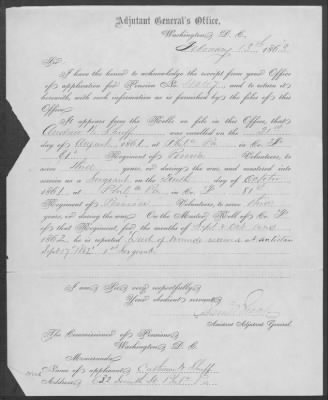 Adjutant General's Office,
Washington D. C.
February 13th 1863
Sir:
I have the honor to acknowledge the receipt from your Office
of application for Pension No. and to return it
herewith, with such information as is furnished by the files of this
Office.
It appears from the Rolls on file in this Office, that
was enrolled on the 21st
day of August 1861, at Phila Pa in Co. P
Regiment of Penna Volunteers, to
serve three years, or during the war, and was mustered into
service as a Sergeant on the day of
1861, at Phila Pa in Co. P
Regiment of Volunteers, to serve three
years, or during the war. On the Muster Roll of Co. P
of that Regiment, for the months of Sept & Oct
1862, he is reported Died of wounds received at Antietam
Sept 17th 1862. 1st Sergeant
I am Sir, very respectfully,
Your obedient servant,
Assistant Adjutant General.
The Commissioner of Pensions,
Washington, D. C.
Memoranda:
Name of applicant
Address South St. Phila Pa